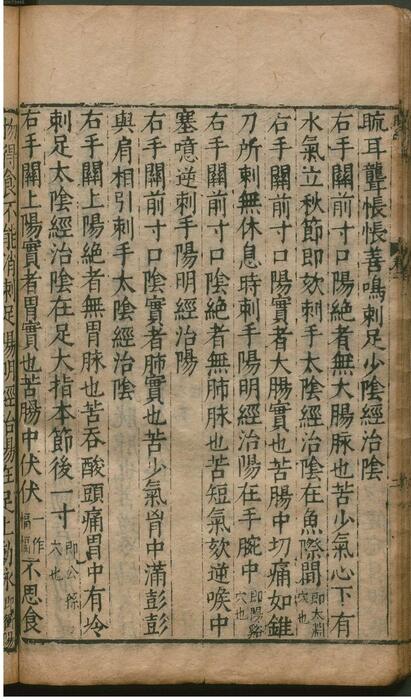 䀮耳聾悵悵善鳴刺足少陰經治陰
右手關前寸口陽絶者無大腸脉也苦少氣心下有
水氣立秋節即欬刺手太陰經治陰在魚際間即太淵穴也
右手關前寸口陽實者大腸實也苦腸中切痛如錐
刀所刺無休息時刺手陽明經治陽在手腕中即陽谿穴也
右手關前寸口陰絶者無肺脉也苦短氣欬逆喉中
塞噫逆刺手陽明經治陽
右手關前寸口陰實者肺實也苦少氣胷中滿彭彭
與肩相引刺手太陰經治陰
右手關上陽絶者無胃脉也苦吞酸頭痛胃中有冷
刺足太陰經治陰在足大指本節後一寸即公孫穴也
右手關上陽實者胃實也苦腸中伏伏一作愊愊不思食
物得食不能消刺足陽明經治陽在足上動脉